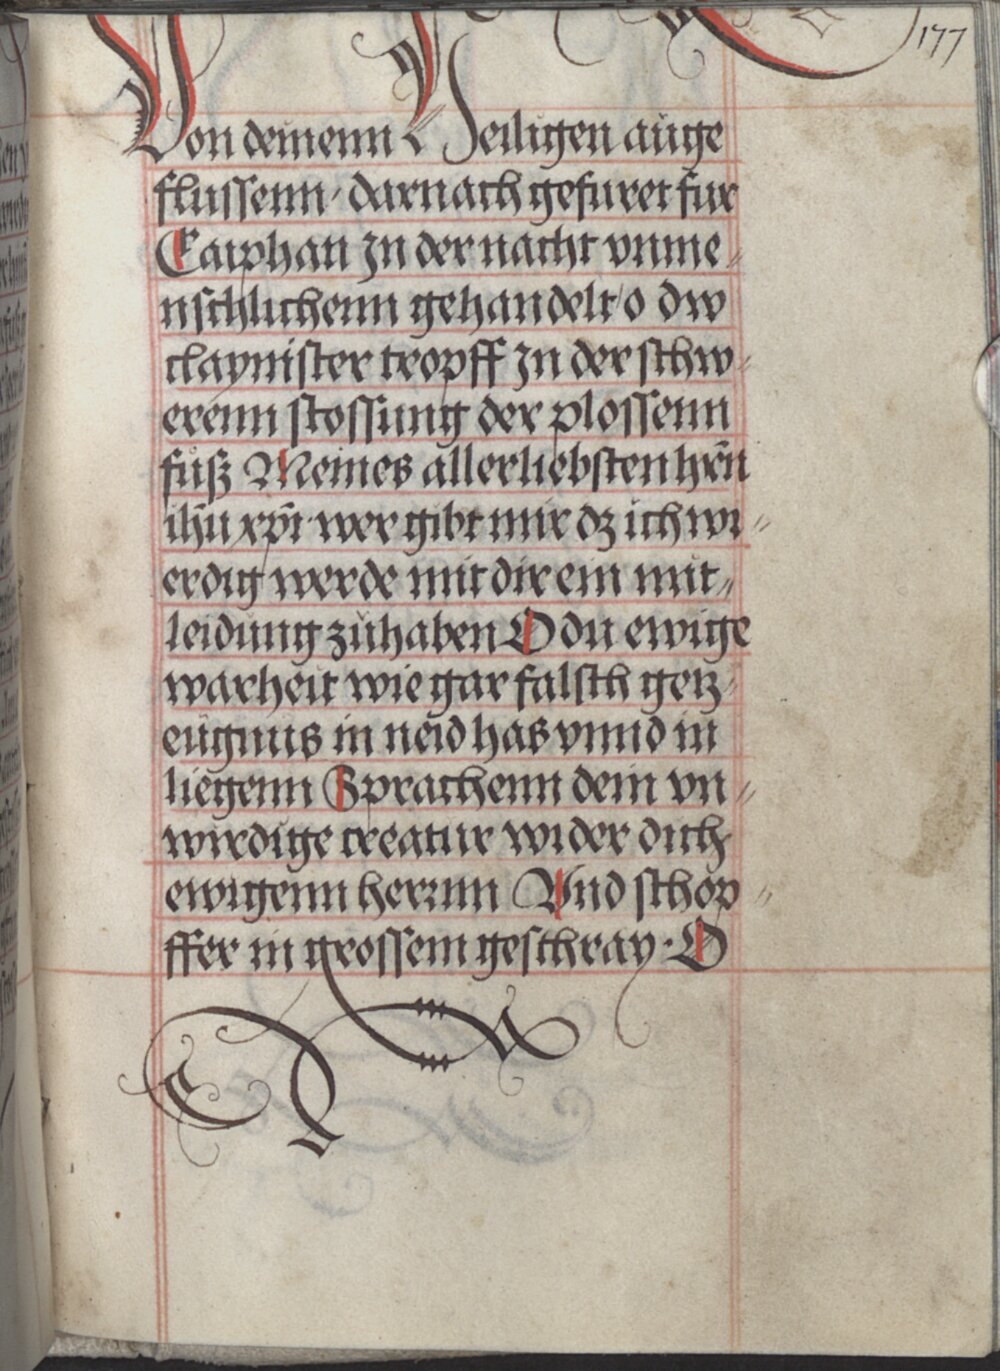 177
Von deinenn Heiligen auge
flussenn· darnach gefuret fur
Caiphan Jn der nacht vnme„
nschlichenn gehandelt o dw
claynister tropff Jn der schw„
erenn stossung der plossenn
fuͤß Meines allerliebsten hr̄n
ihū xp̄i· wer gibt mir dz ich wi„
erdig werde mit dir ein mit„
leidung zuͤhaben O du ewige
warheit wie gar falsch getz„
eugnus in neid has vnnd in
liegenn Sprachenn dein vn„
wirdige creatur wider dich
ewigenn herrnn Vnd schop„
ffer in grossem geschray· O